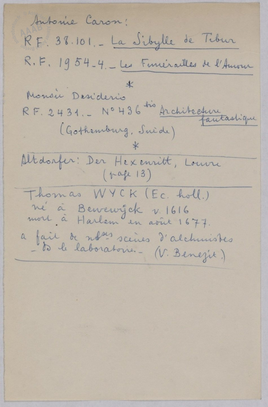 Antoine Caron:
R.F. 38.101 _ La Sibylle de Tibur
R.F. 1954-4 _ Les Funérailles de l'Amour
*
Monsù Desiderio
R.F. 2431 _ N° 436 bis Architecture fantastique
(Gothemburg, Suède)
*
Altdorfer: Der Hexenritt, Louvre
(page 13)
Thomas WYCK (Ec. holl.)
né à Bewerwijck v. 1616
mort à Harlem en août 1677
a fait de nbses scènes d'alchimistes
_ de laboratoire _ (V. Benezit)